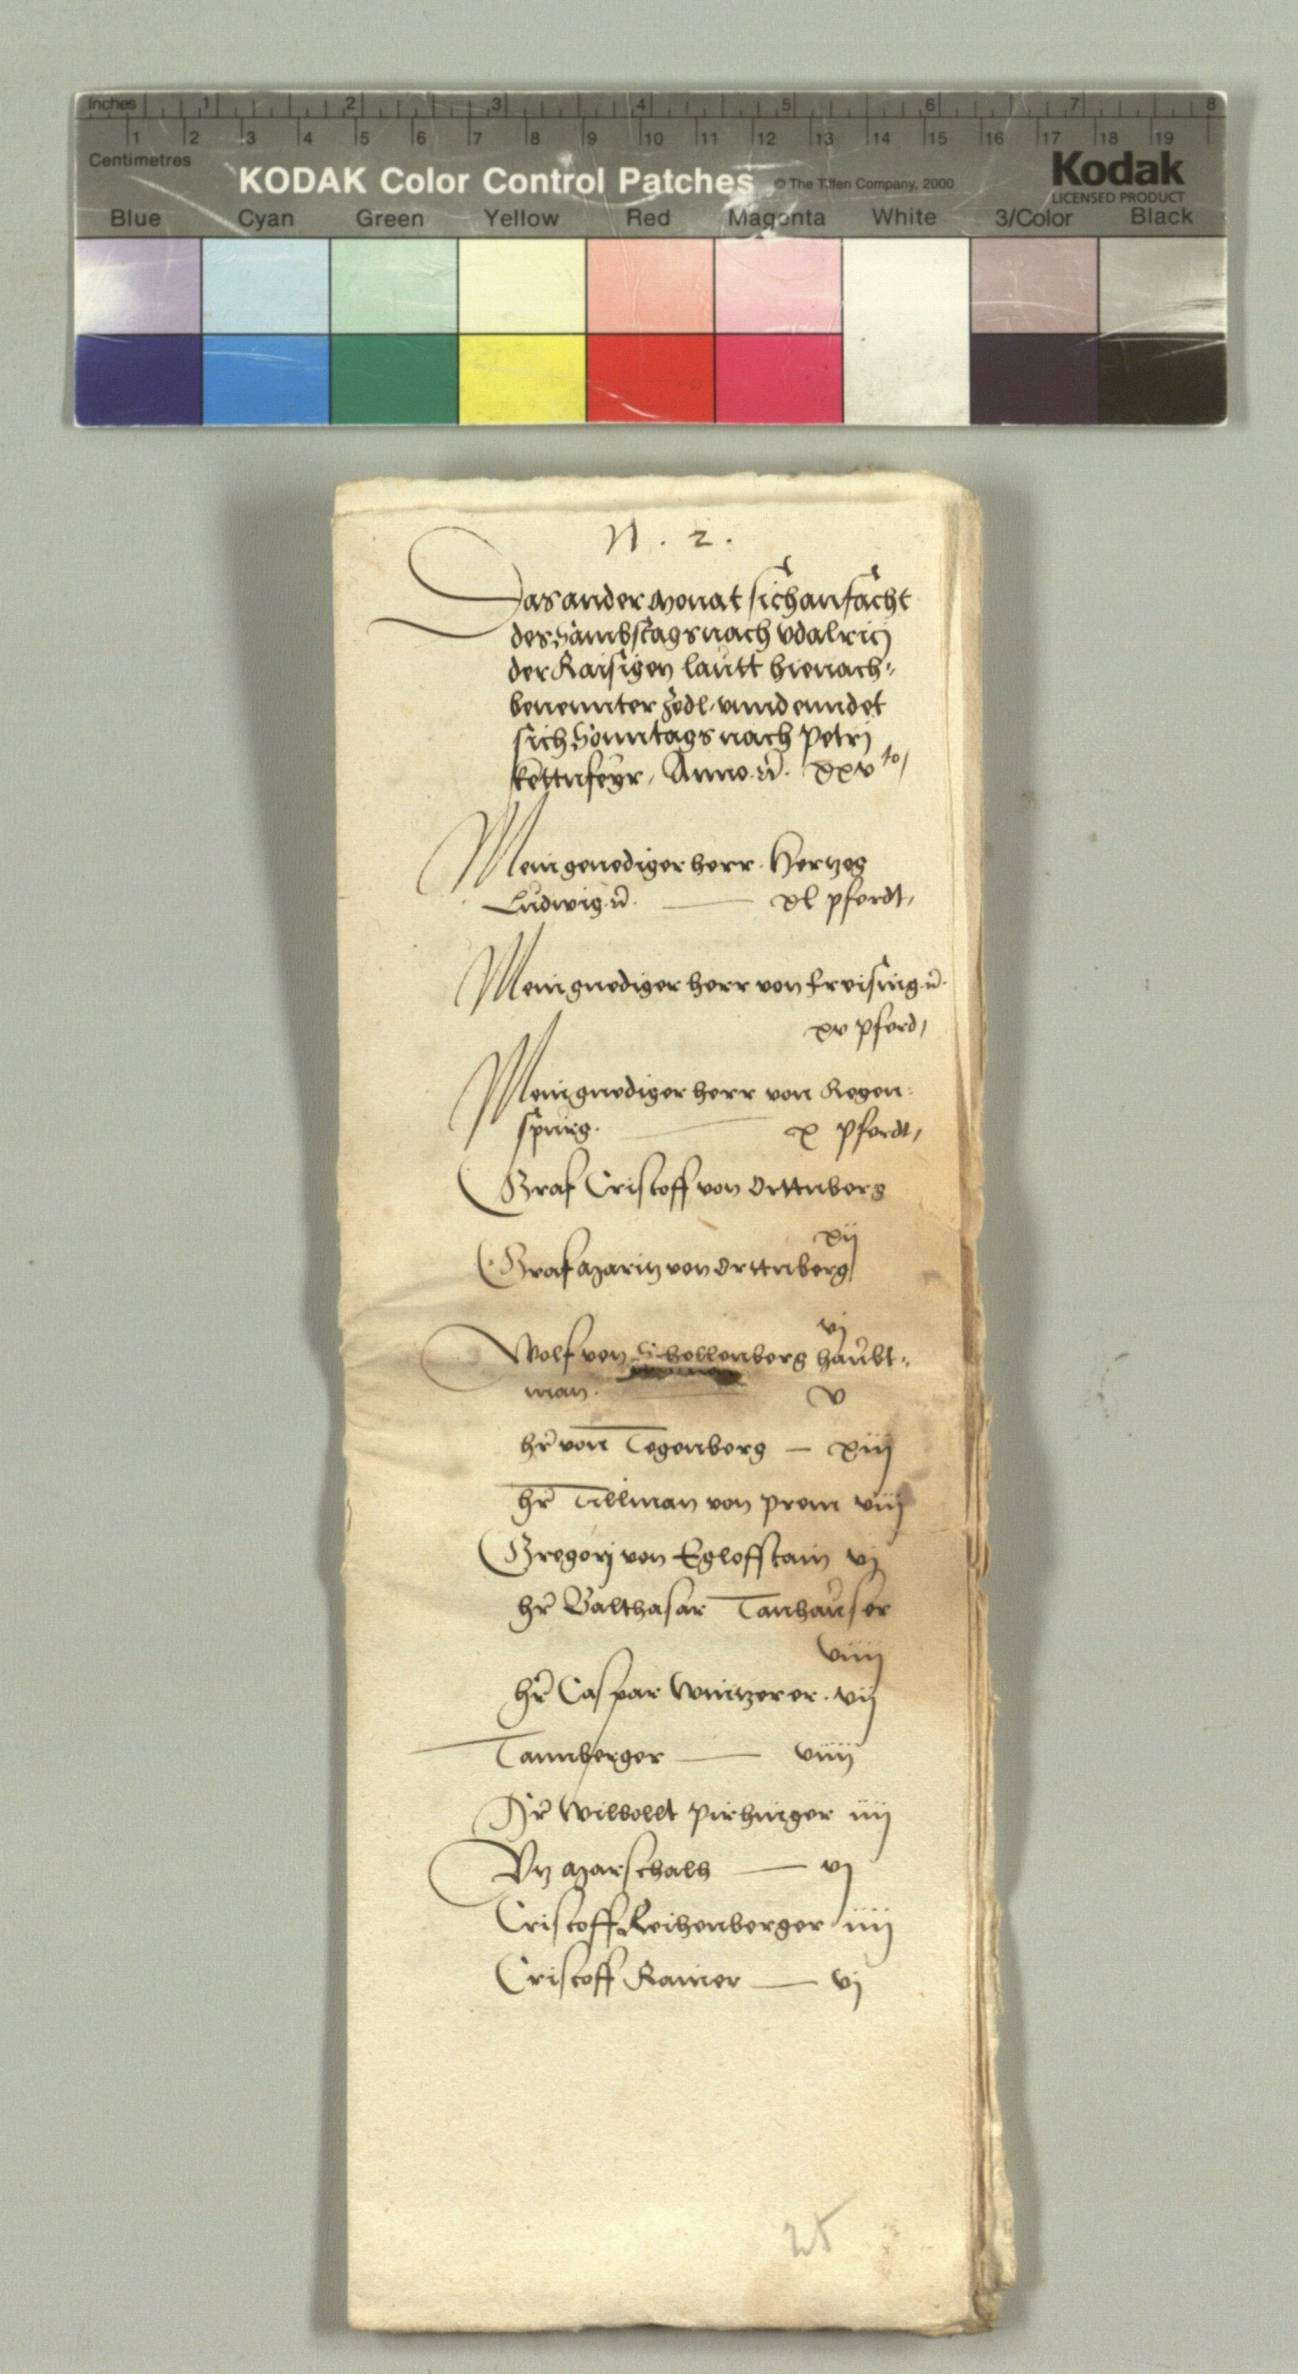 Inches 1 2 3 4 5 6 7 8
1 2 3 4 5 6 7 8 9 10 11 12 13 14 15 16 17 18 19
Centimetres
KODAK Color Control Patches © The Tiffen Company, 2000 Kodak
LICENSED PRODUCT
Blue Cyan Green Yellow Red Magenta White 3/Color Black
N. 2.
Das ander Monat sich anfácht
des Sambstags nach vdalricj
der Raisigen lautt hienach-
benennter zedl, vnnd enndet
sich Sonntags nach petrj
kettnfeyr, Anno. xxv to
Mein genediger herr. Hertzog
Ludwig. — xl pferdt,
Mein gnediger herr von freising.
xv pferd,
Mein gnediger herr von Regen:
spurg. — x pferdt,
Graf Cristoff von Orttnberg
xij
Graf Moritz von Orttnberg
vj
Wolf von Schellenberg haubt-
man. v
hr von Degenberg — xiij
hr Tillman von prem viij
Gregorj von Eglofstain vj
hr Balthasar Tanhauser
viiij
hr Caspar Wintzerer. vij
Tannberger — viiij
Hr Wilbollt pirhinger iiij
Vtz Marschalh — vj
Cristoff Leihenberger iiij
Cristoff Rainer — vj
25